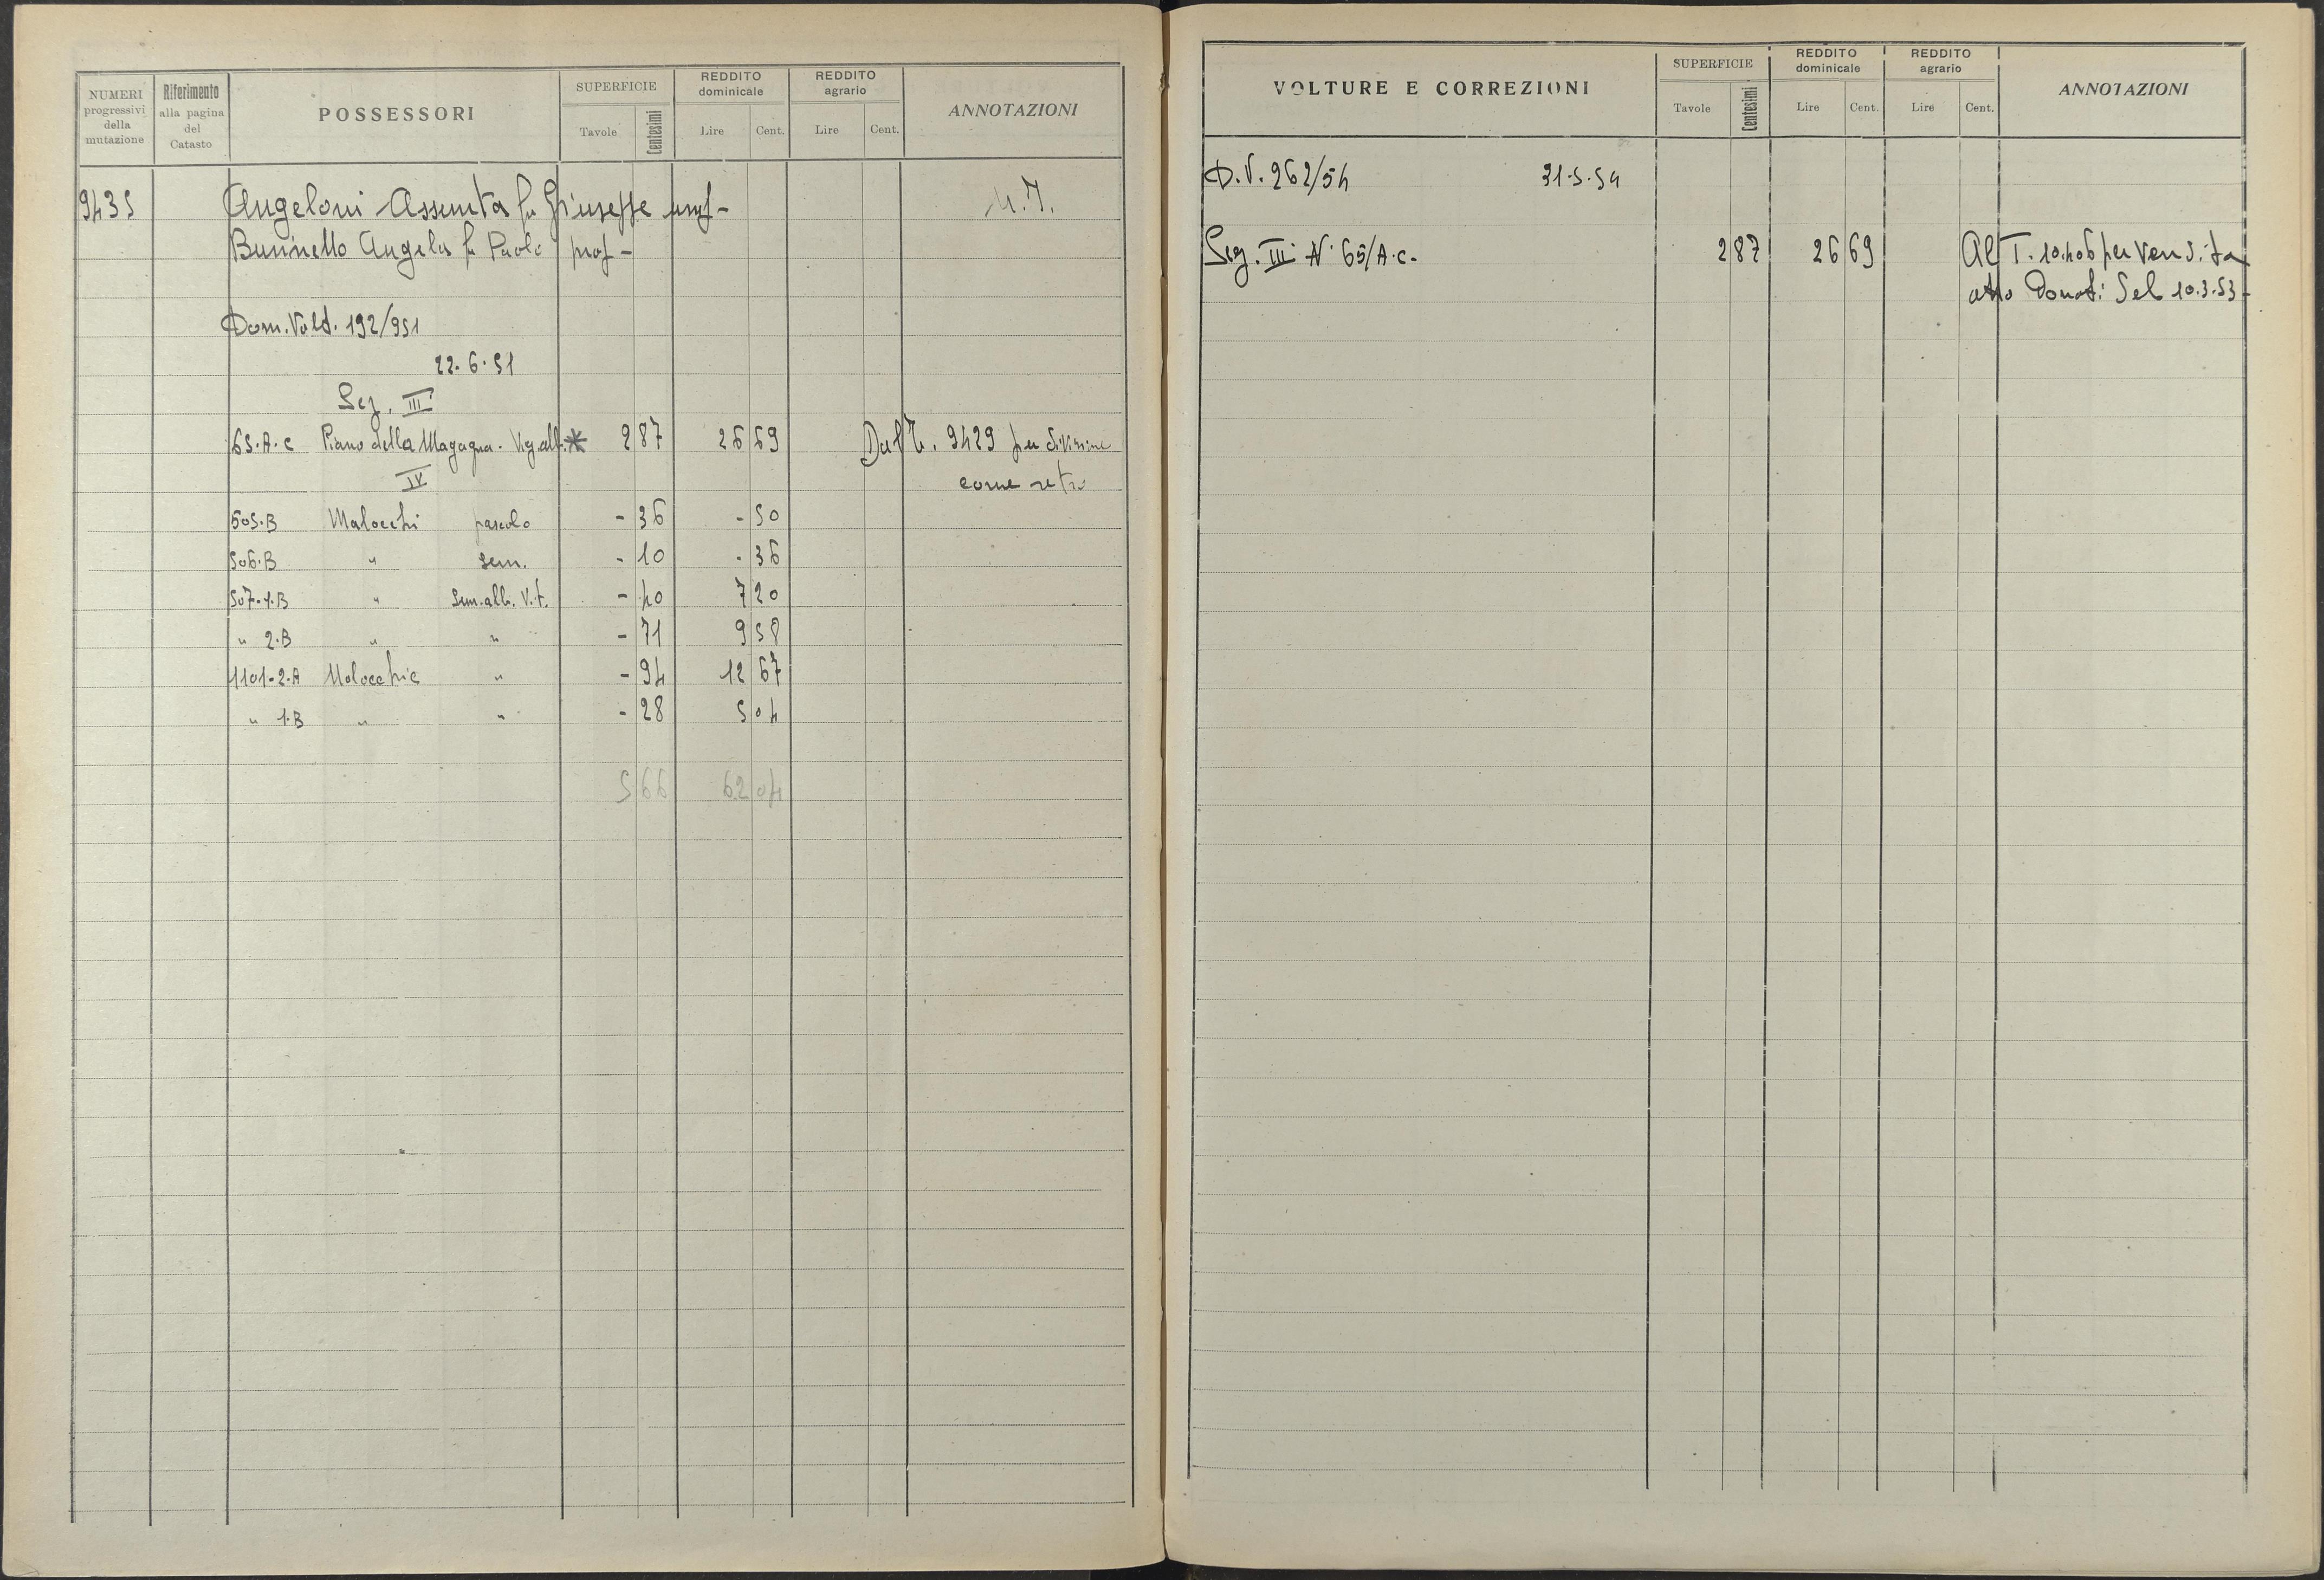 NUMERI progressivi della mutazione | Riferimento alla pagina del Catasto | POSSESSORI | SUPERFICIE Tavole Centesimi | REDDITO dominicale Lire Cent. | REDDITO agrario Lire Cent. | ANNOTAZIONI
9435 Angeloni Assunta fu Giuseppe usuf-
Angela fu Paolo prof-
Dom. Volt. 192/951
22.6.51
Sez. III
65.A.c Piano della Magagna. Vig.alb.* 2 87 26 69 Dal T. 9429 per divisione
IV come retro
505.B Malocchi pascolo - 36 - 50
506.B " sem. - 10 - 36
507-1.B " Sem.alb. V.t. - 40 7 20
" 2.B " " - 71 9 58
1101-2.A Molocchie " - 94 12 67
" 1.B " " - 28 5 04
5 66 62 04
VOLTURE E CORREZIONI | SUPERFICIE Tavole Centesimi | REDDITO dominicale Lire Cent. | REDDITO agrario Lire Cent. | ANNOTAZIONI
D.V. 262/54 31-5-54
Sez. III N° 65/A.c. 2 87 26 69 Al T. 10.406 per Vendita
atto Donati del 10.3.53-